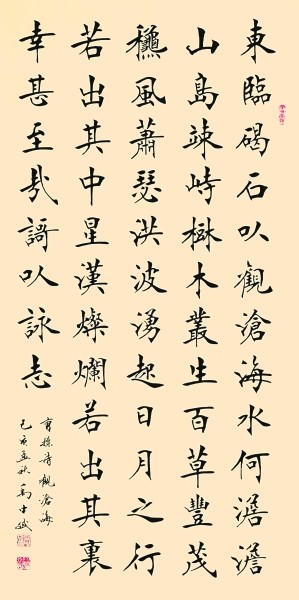 東臨碣石㕥觀滄海水何澹澹
山島竦峙樹木叢生百草豐茂
龝風蕭瑟洪波湧起日月之行
若出其中星漢燦爛若出其裏
幸甚至哉謌㕥詠志
曹操詩觀滄海
己亥孟秋